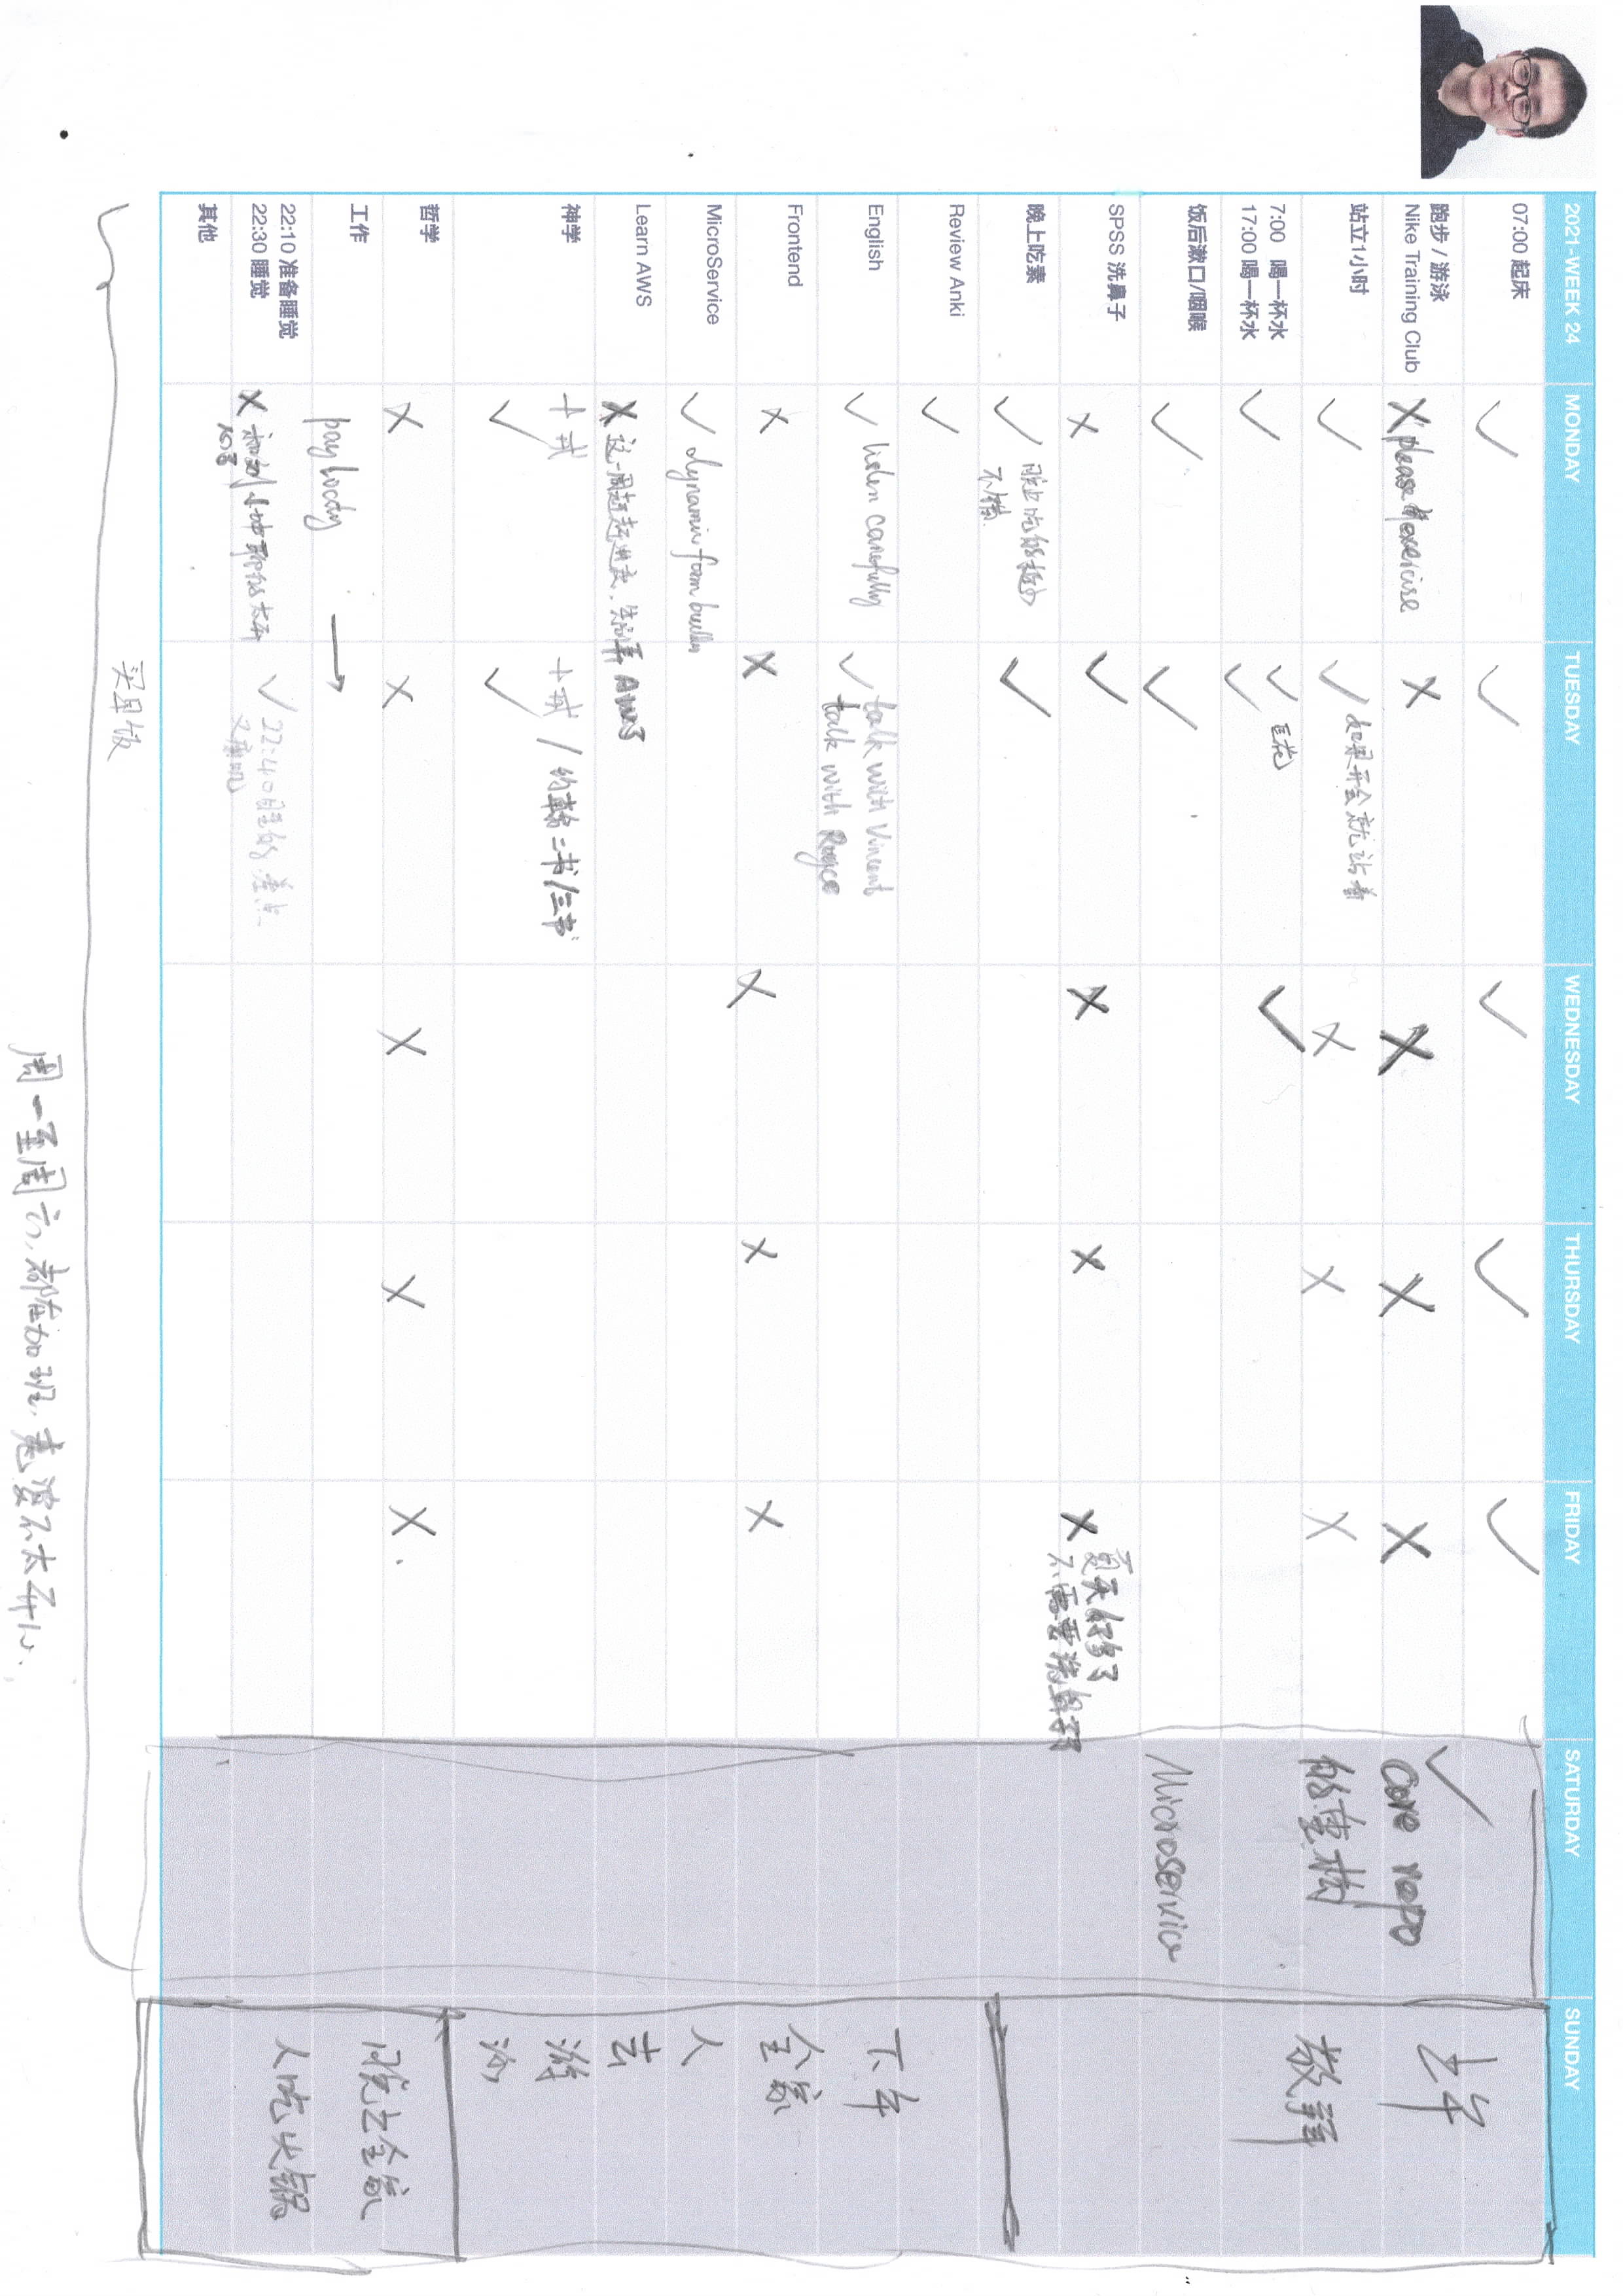 2021-WEEK 24 MONDAY TUESDAY WEDNESDAY THURSDAY FRIDAY SATURDAY SUNDAY
07:00 起床
上午
跑步 / 游泳
Nike Training Club
please exercise
core repo
的重构
敬拜
站立1小时
如果开会就站着
7:00 喝一杯水
17:00 喝一杯水
饭后漱口/咽喉
Microservice
SPSS 洗鼻子
夏天好多了
不需要洗鼻子了
晚上吃素
晚上吃的挺少
不错
Review Anki
English
listen carefully
talk with Vincent
talk with Royce
下午
Frontend
全家
MicroService
dynamic form builder
人
Learn AWS
这一周赶赶进度,先别弄AWS了
去
神学
十戒
十戒 / 约翰二书/三书
游
泳
哲学
工作
晚上全家
22:10 准备睡觉
22:30 睡觉
聊的太开
心了
22:40睡的 差点
人吃火锅
其他
买早饭
周一至周六,都在加班,老婆不太开心.